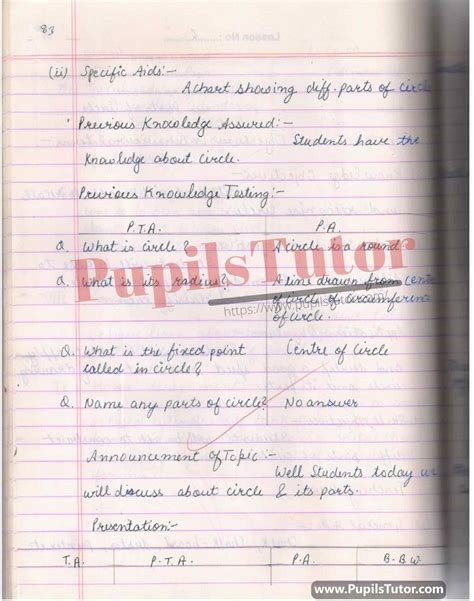 83
(ii) Specific Aids:-
A chart showing diff. parts of circle
Previous Knowledge Assured:-
Students have the
knowledge about circle.
Previous Knowledge Testing:-
P.T.A. P.A.
Q. What is circle? A circle is a round.
Q. What is its radius? A line drawn from centre
of circle of circumference
of circle.
PupilsTutor
https://www.pupilstutor
Q. What is the fixed point Centre of Circle
called in circle?
Q. Name any parts of circle? No answer
Announcement of Topic:-
Well Students today we
will discuss about circle & its parts.
Presentation:-
T.A. P.T.A. P.A. B.B.W.
www.PupilsTutor.com